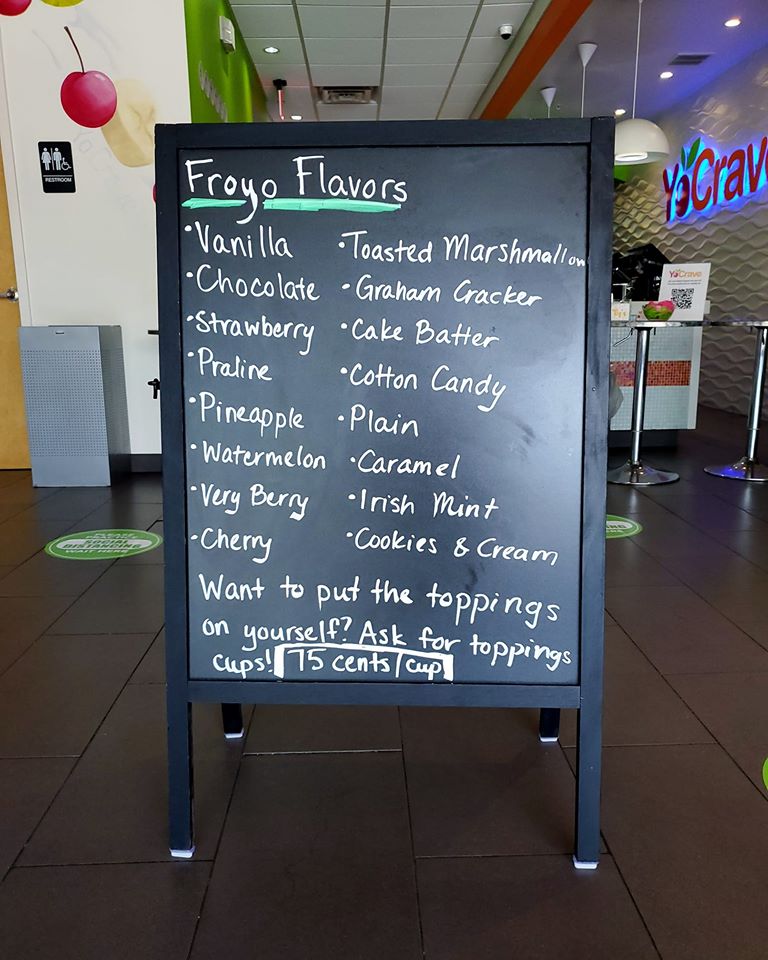 Froyo Flavors
•Vanilla
•Chocolate
•Strawberry
•Praline
•Pineapple
•Watermelon
•Very Berry
•Cherry
•Toasted Marshmallow
•Graham Cracker
•Cake Batter
•Cotton Candy
•Plain
•Caramel
•Irish Mint
•Cookies & Cream
Want to put the toppings
on yourself? Ask for toppings
cups! 75 cents/cup
RESTROOM
YoCrave
YoCrave
WAIT HERE